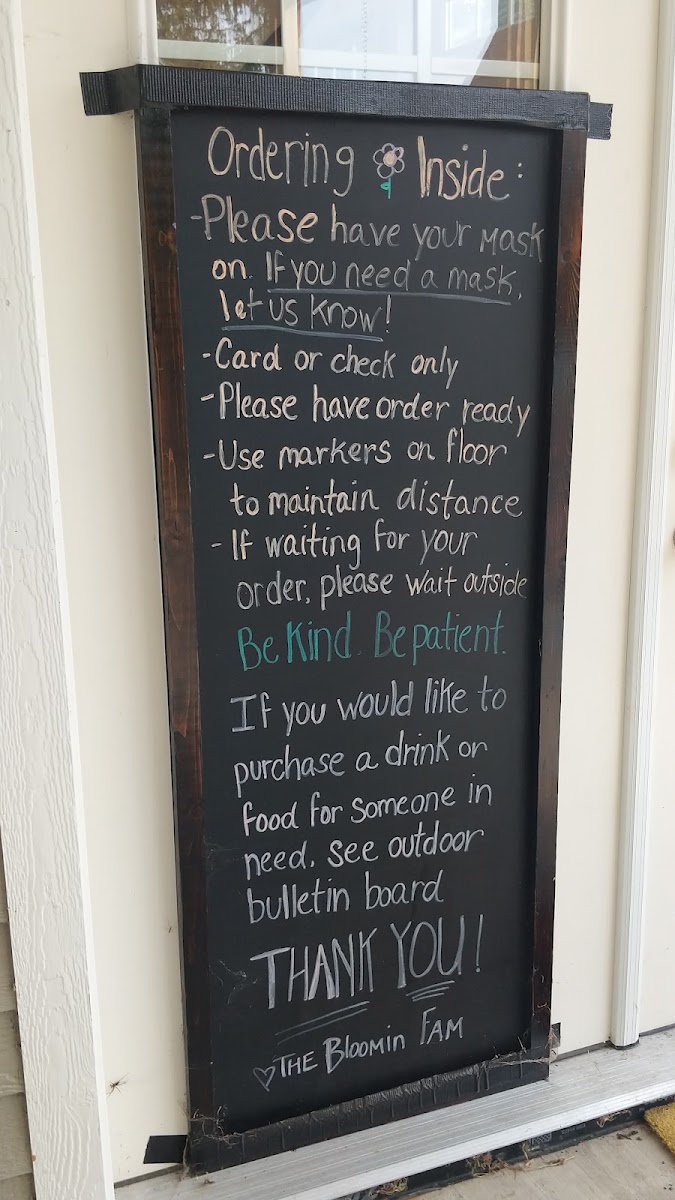 Ordering Inside:
-Please have your mask
on. If you need a mask,
let us know!
-Card or check only
-Please have order ready
-Use markers on floor
to maintain distance
-If waiting for your
order, please wait outside
Be Kind. Be patient.
If you would like to
purchase a drink or
food for someone in
need, see outdoor
bulletin board
THANK YOU!
♡THE Bloomin FAM